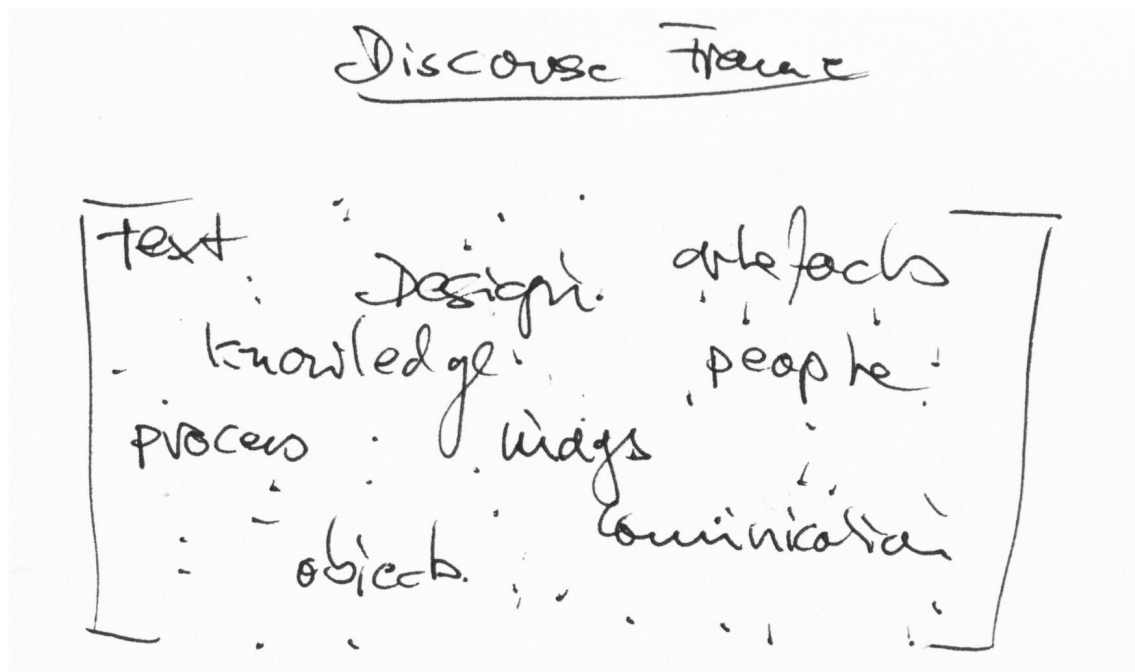 Discourse Frame
text
Design artefacts
knowledge people
process
objects communication